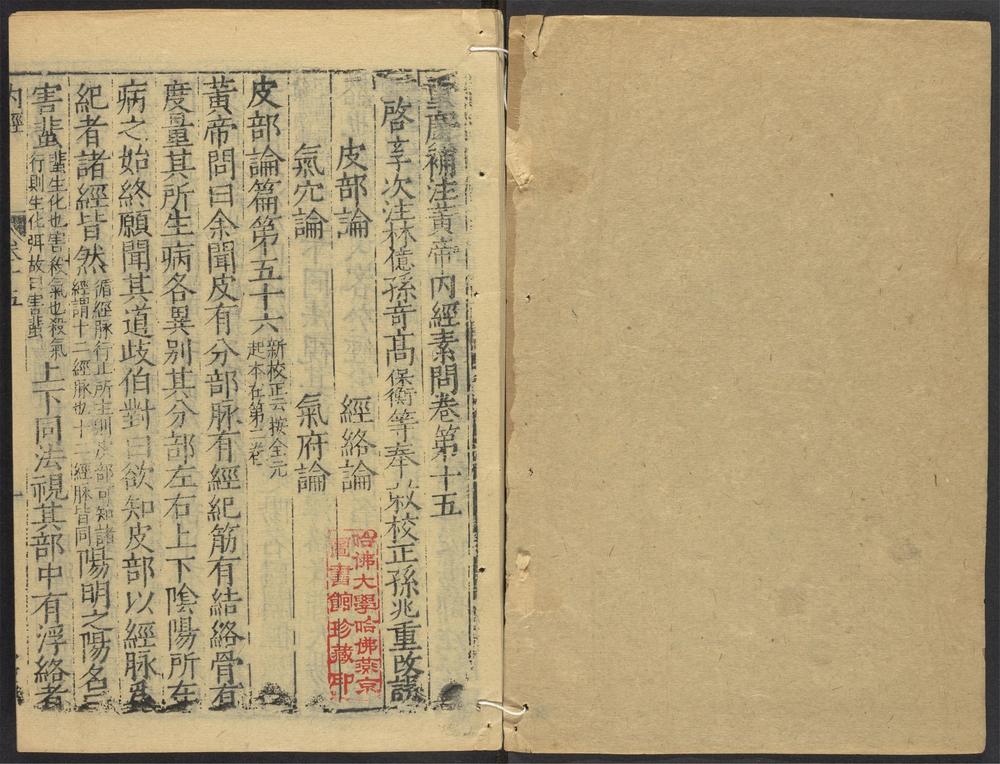 重廣補注黃帝內經素問卷第十五
啓玄子次注林億孫奇高保衡等奉敕校正孫兆重改誤
皮部論 經絡論
氣穴論 氣府論
皮部論篇第五十六新校正云按全元起本在第二卷
黃帝問曰余聞皮有分部脉有經紀筋有結絡骨有
度量其所生病各異別其分部左右上下陰陽所在
病之始終願聞其道歧伯對曰欲知皮部以經脉爲
紀者諸經皆然循經脉行止所主則皮部可知諸經謂十二經脉也十二經脉皆同陽明之陽名曰
害蜚蜚生化也害殺氣也殺氣行則生化弭故曰害蜚上下同法視其部中有浮絡者
內經 卷十五 一
哈佛大學哈佛燕京
圖書館珍藏印